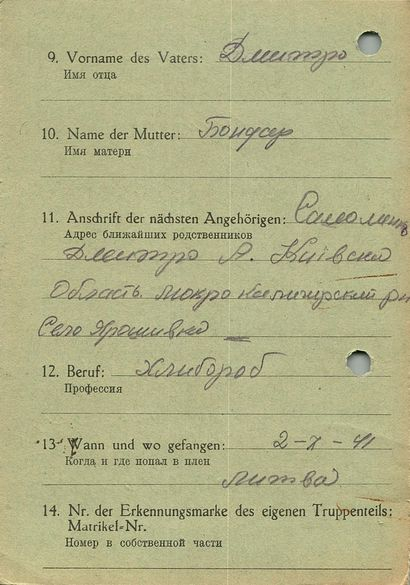 9. Vorname des Vaters: Дмитро
Имя отца
10. Name der Mutter: Бондар
Имя матери
11. Anschrift der nächsten Angehörigen:
Адрес ближайших родственников
Дмитро А. Київска
Область Мокро Калигирский рн
Село Ярошивка
12. Beruf: Хлибороб
Профессия
13. Wann und wo gefangen: 2-X-41
Когда и где попал в плен
Литва
14. Nr. der Erkennungsmarke des eigenen Truppenteils:
Matrikel-Nr.
Номер в собственной части